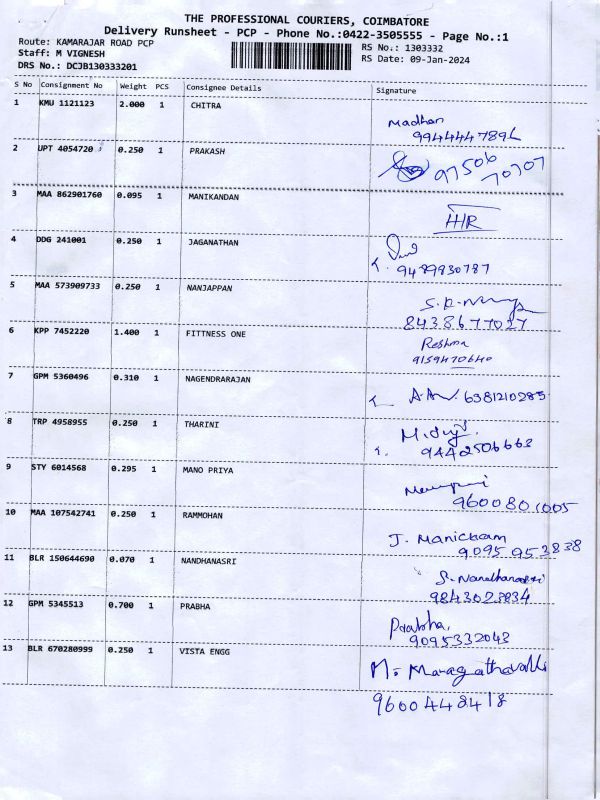 THE PROFESSIONAL COURIERS, COIMBATORE
Delivery Runsheet - PCP - Phone No.:0422-3505555 - Page No.:1
Route: KAMARAJAR ROAD PCP
Staff: M VIGNESH
DRS No.: DCJB130333201
RS No.: 1303332
RS Date: 09-Jan-2024
S No Consignment No Weight PCS Consignee Details Signature
1 KMU 1121123 2.000 1 CHITRA
Madhan
9944447896
2 UPT 4054720 0.250 1 PRAKASH
97506
70707
3 MAA 862901760 0.095 1 MANIKANDAN
H/R
4 DDG 241001 0.250 1 JAGANATHAN
9489930787
5 MAA 573909733 0.250 1 NANJAPPAN
8438677027
6 KPP 7452220 1.400 1 FITTNESS ONE
Reshma
9159470640
7 GPM 5360496 0.310 1 NAGENDRARAJAN
6381210285
8 TRP 4958955 0.250 1 THARINI
9442506663
9 STY 6014568 0.295 1 MANO PRIYA
9600801005
10 MAA 107542741 0.250 1 RAMMOHAN
J. Manickam
9095953838
11 BLR 150644690 0.070 1 NANDHANASRI
S. Nandhanasri
9843023834
12 GPM 5345513 0.700 1 PRABHA
Prabha.
9095332043
13 BLR 670280999 0.250 1 VISTA ENGG
M. Maragathavalli
9600442418